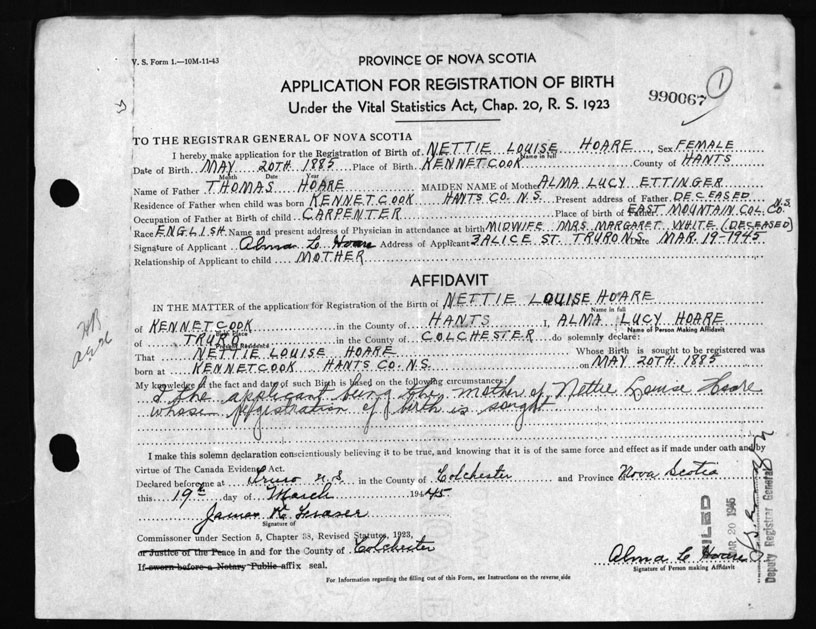 V. S. Form 1.—10M-11-43
PROVINCE OF NOVA SCOTIA
APPLICATION FOR REGISTRATION OF BIRTH
Under the Vital Statistics Act, Chap. 20, R. S. 1923
990067
1
TO THE REGISTRAR GENERAL OF NOVA SCOTIA
I hereby make application for the Registration of Birth of NETTIE LOUISE HOARE, Sex FEMALE
Name in full
Date of Birth MAY 20TH 1885 Place of Birth KENNETCOOK County of HANTS
Month Date Year
Name of Father THOMAS HOARE MAIDEN NAME of Mother ALMA LUCY ETTINGER
Residence of Father when child was born KENNETCOOK HANTS CO. N.S. Present address of Father DECEASED
Occupation of Father at Birth of child CARPENTER Place of birth of Father EAST MOUNTAIN COL. CO. N.S.
Race ENGLISH Name and present address of Physician in attendance at birth MIDWIFE MRS. MARGARET WHITE (DECEASED)
Signature of Applicant Alma L Hoare Address of Applicant 3 ALICE ST. TRURO N.S. Date MAR. 19-1945
Relationship of Applicant to child MOTHER
AFFIDAVIT
IN THE MATTER of the application for Registration of the Birth of NETTIE LOUISE HOARE
Name in full
of KENNETCOOK in the County of HANTS I, ALMA LUCY HOARE
Birth Place Name of Person Making Affidavit
of TRURO in the County of COLCHESTER do solemnly declare:
Present Residence
That NETTIE LOUISE HOARE Whose Birth is sought to be registered was
born at KENNETCOOK HANTS CO. N.S. on MAY 20TH 1885
My knowledge of the fact and date of such Birth is based on the following circumstances:
I the applicant being the mother of Nettie Louise Hoare
whose registration of birth is sought
I make this solemn declaration conscientiously believing it to be true, and knowing that it is of the same force and effect as if made under oath and by
virtue of The Canada Evidence Act.
Declared before me at Truro N.S in the County of Colchester and Province Nova Scotia
this 19th day of March 1945
James K Fraser
Signature of
Commissoner under Section 5, Chapter 38, Revised Statutes, 1923,
or Justice of the Peace in and for the County of Colchester
If sworn before a Notary Public affix seal.
Alma L Hoare
Signature of Person making Affidavit
FILED
MAR 20 1945
Deputy Registrar General
For Information regarding the filling out of this Form, see Instructions on the reverse side